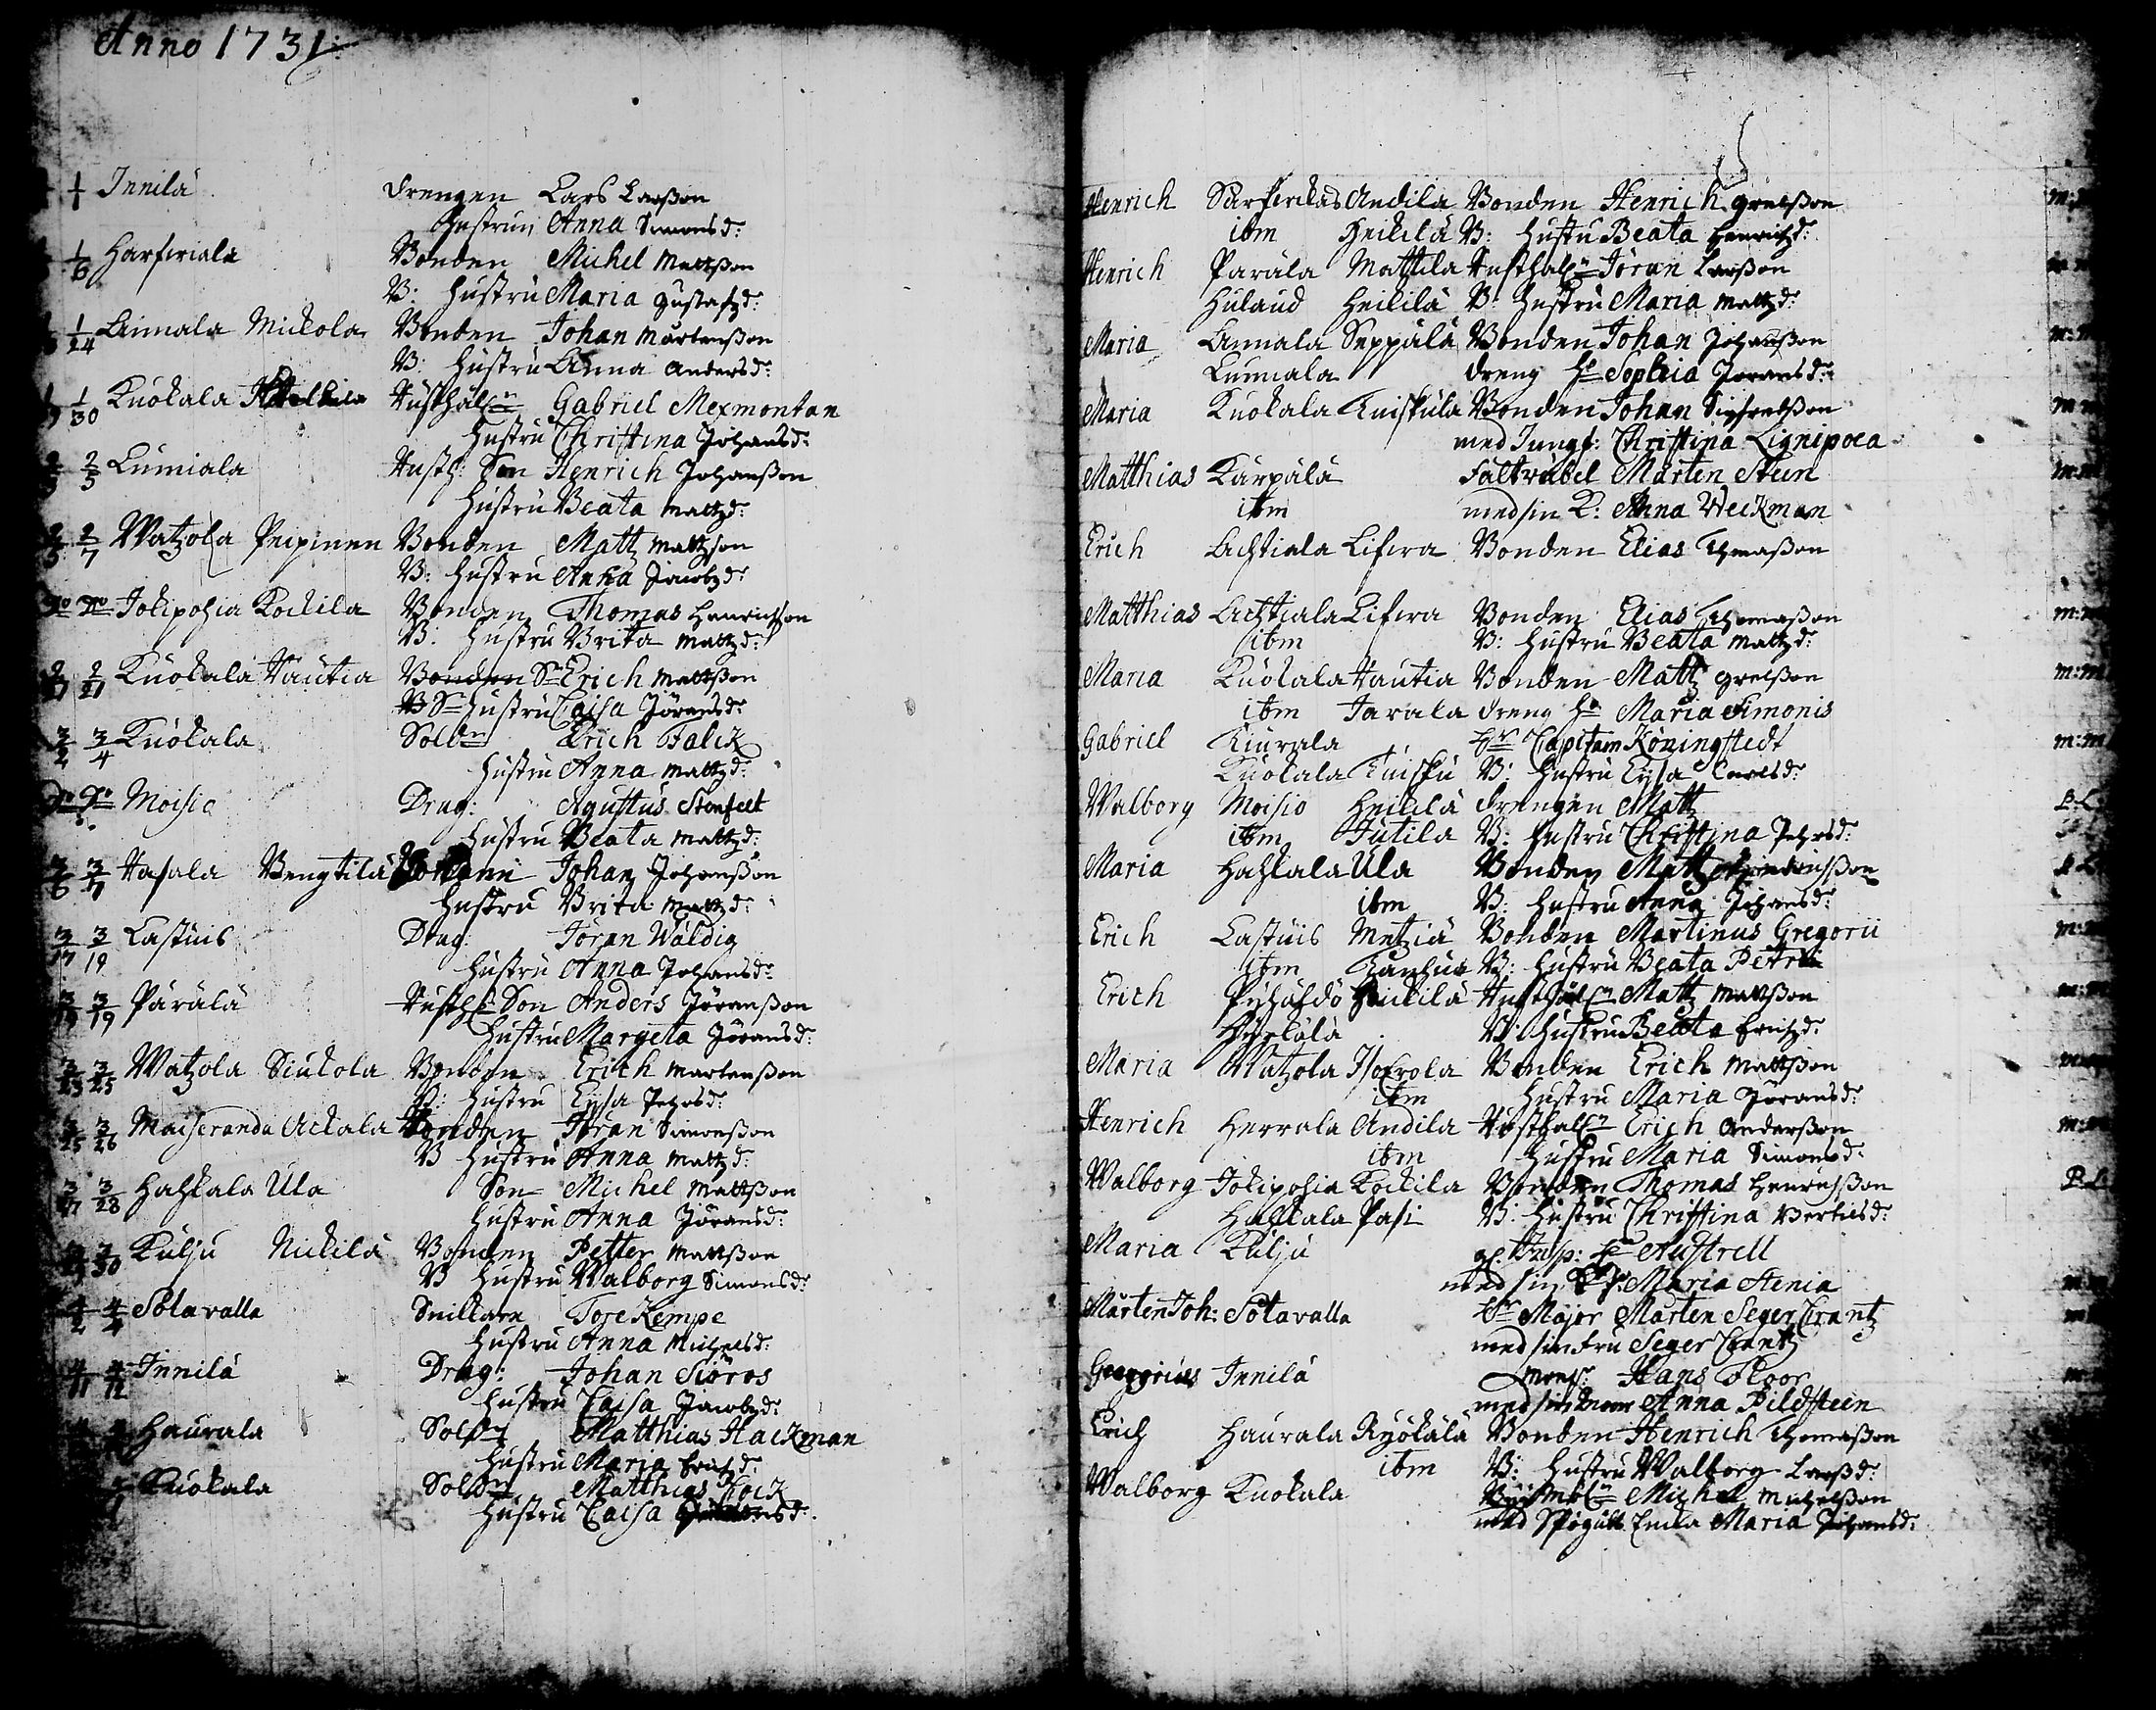 Anno 1731:
1/1 Innilä Drengen Lars Larßon
Hustrun Anna Simonsd:
1/6 Harferiala Bonden Michel Mattßon
B: Hustru Maria Gustafzd:
1/24 Annala Mickola Bonden Johan Mårtenßon
B: Hustru Anna Andersd:
1/30 Kuokala Gabriel Mexmontan
Hustru Christina Johansd:
2/5 Lumiala Rusth: Son Henrich Johanßon
Hustru Beata Mattzd:
2/5 2/7 Watzola Peipinen Bonden Mattz Mattzson
B: Hustru Anna Jacobzd:
Do Do Jokipohia Kockila Bonden Thomas Henrichson
B: Hustru Brita Mattzd:
2/21 2/21 Kuokala Hautia Bonden Sn Erich Mattßon
B Sn Hustru Caisa Jöransd:
3/2 3/4 Kuokala Soldn Erich Falck
Hustru Anna Mattzd:
Do Do Moisio Drag: Agustus Stenfelt
Hustru Beata Mattzd:
3/6 3/7 Hasala Bengtilä Johan Johanßon
Hustru Brita Mattzd:
3/17 3/19 Lastuis Drag: Jöran Wäldig
Hustru Anna Johansd:
3/19 3/19 Pärälä Son Anders Jöranßon
Hustru Margeta Jöransd:
3/25 3/25 Watzola Siukola Bonden Erich Martenßon
B: Hustru Eysa Pehrsd:
3/25 3/26 Maiseranda Ackala Bonden Jöran Simonßon
B Hustru Anna Mattzd:
3/27 3/28 Hahkala Ula Son Michel Mattßon
Hustru Anna Jöransd:
3/30 Kulju Nickilä Bonden Petter Mattßon
B Hustru Walborg Simonsd:
4/2 4/4 Sotavalla Snickare Tore Kempe
Hustru Anna Michelsd:
4/11 4/12 Innilä Drag: Johan Siöros
Hustru Caisa Jacobzd:
Haurala Soldn Matthias Hackman
Hustru Maria Erichzd:
Kuokala Soldn Matthias Cock
Hustru Caisa
Henrich Andila Bonden Henrich Grelßon
ibm Heikilä B: Hustru Beata Henrichzd:
Henrich Parala Mattila Rusthåln Jöran Larßon
Hulaud Heikilä B: Hustru Maria Mattzd:
Maria Annala Seppälä Bonden Johan Johanßon
Lumiala dreng Hu Sophia Jöransd:
Maria Kuokala Kuiskula Bonden Johan Sigfredßon
med Jungf: Christina Lignipoea
Matthias Kärpälä Faltväbel Mårten Steen
ibm med sin K: Anna Weckman
Erich Achtiala Lifwa Bonden Elias Thomaßon
Matthias Achtiala Lifwa Bonden Elias Thomaßon
ibm B: Hustru Beata Mattzd:
Maria Kuokala Hautia Bonden Mattz Grelßon
ibm Jarala dreng Hu Maria Simonis
Gabriel Kiurala Hr Capitain Köningstedt
Kuokala Kuisku B: Hustru Eysa Carlsd:
Walborg Moisio Heikilä drengen Mattz
ibm Jutila B: Hustru Christina Pehrsd:
Maria Hahkala Ula Bonden Mattz
ibm B: Hustru Anna Johansd:
Erich Lastuis Metziä Bonden Martinus Gregorii
ibm Kanhua B: Hustru Beata Petri
Erich Heikilä Rusthåln Matt Mattßon
B: Hustru Beata Erichzd:
Maria Watzola Isocrola Bonden Erich Mattßon
ibm Hustru Maria Jöransd:
Henrich Herrala Andila Rusthåln Erich Anderßon
ibm Hustru Maria Simonsd:
Walborg Jokipohia Kockila Bonden Thomas Henrichßon P.L.
Hahkala Pasi B: Hustru Christina Bertilsd:
Maria Kulju Hr Austrell
med sin Maria Stenia
Mårten Joh: Sotavalla Hr Major Mårten Seger Crantz
med sin Fru Seger Crantz
Georgius Innilä Monsr: Hans Floor
med sin Anna Pildsteen
Erich Haurala Ryökälä Bonden Henrich Thomaßon
ibm B: Hustru Walborg Larßd:
Walborg Kuokala Michel Michelßon
med Enka Maria Johansd: